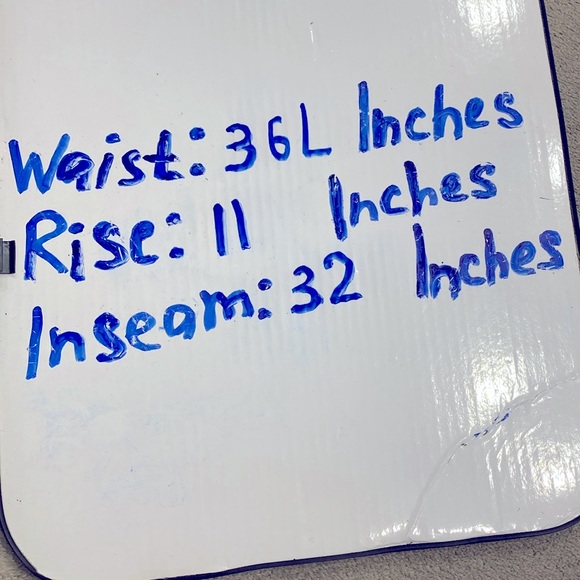 Waist: 36L Inches
Rise: 11 Inches
Inseam: 32 Inches